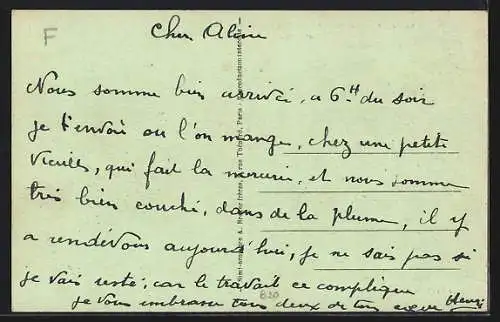 F
Cher Aline
Nous somme bien arrivé, a 6H du soir
je t'envoi ou l'on mange, chez une petite
vieille, qui fait la mercerie, et nous somme
très bien couché, dans de la plume, il y
a rendévous aujourd'hui, je ne sais pas si
je vais resté, car le travail ce complique
je vous embrasse tous deux de tou coeur Henri
B20